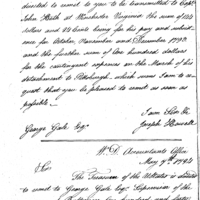 directed to remit to you to be transmitted to Capt
John Heth at Winchester Virginia the sum of
dollars and 24 Cents being for his pay and subsist-
ence for October November and December 1793
and the further sum of One hundred dollars
for the contingent expences on the March of his
detachment to Pittsburgh, which sums I am to re
quest that you be pleased to remit as soon as
possible.
I am Sir &c
Joseph Howell
George Gale Esqr
W. D. Accountants Office
May 7th 1794
Sir
The Treasurer of the United States is directed
to remit to George Gale Esqr Supervisor of the
One hundred and